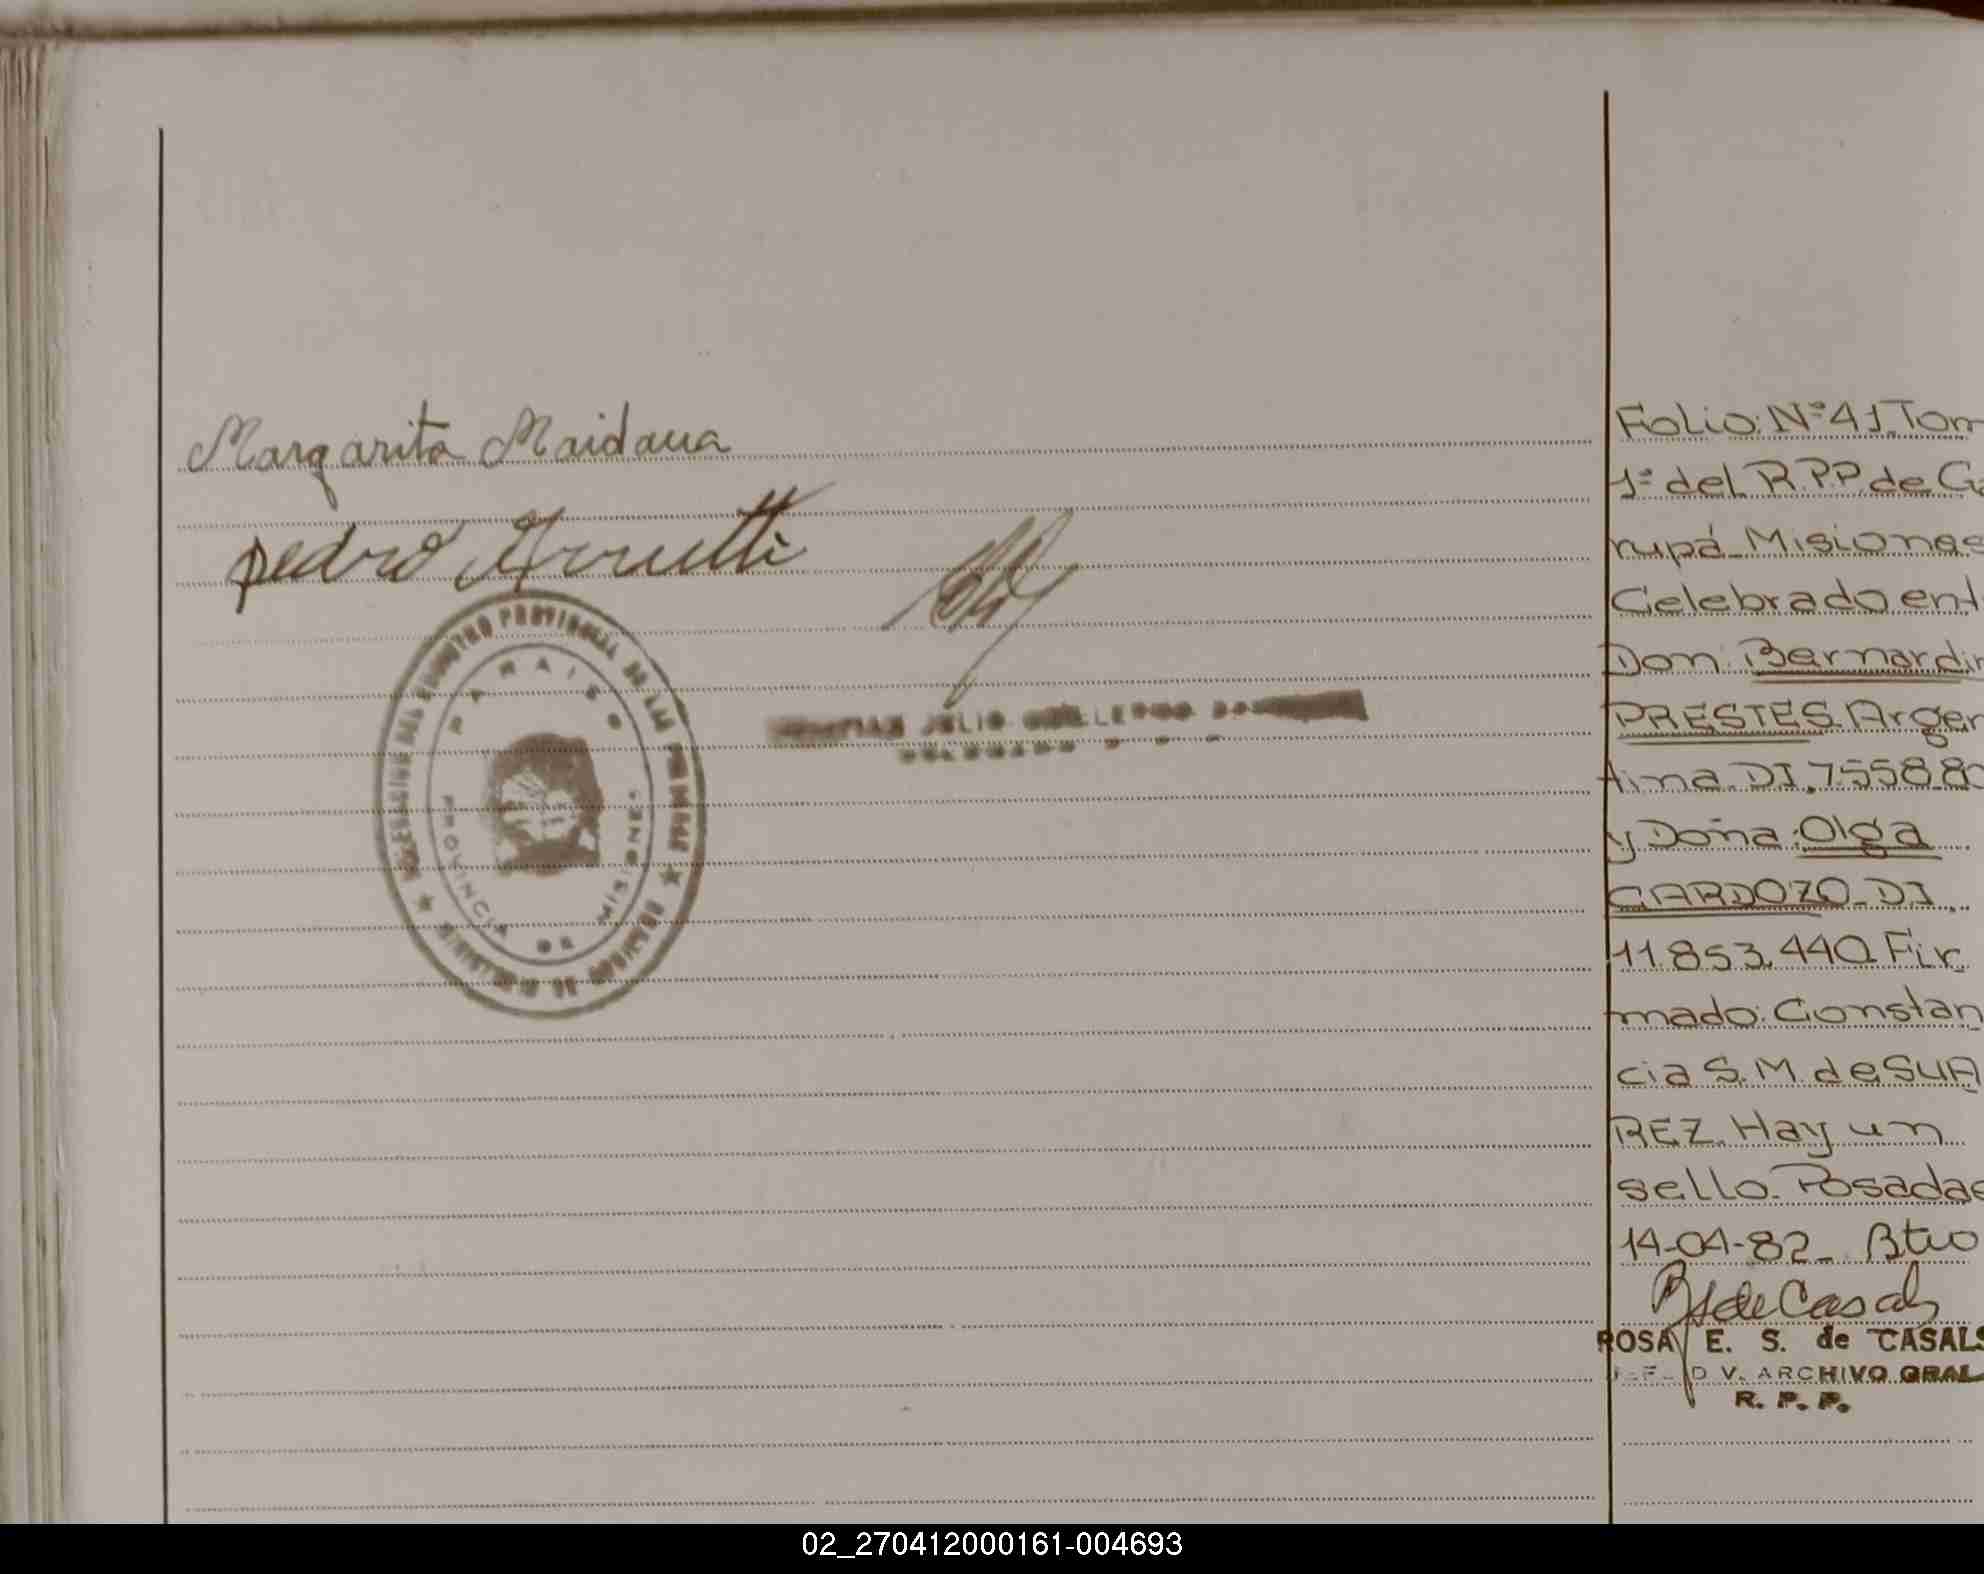 Margarita Maidana
pedro
DEL REGISTRO PROVINCIAL DE LAS PERSONAS
PARAISO
PROVINCIA DE MISIONES
JULIO GUILLERMO
DELEGADO
Folio: Nº 41. Tom
1º del R.P.P. de Ga
rupá Misiones
Celebrado ent
Don: Bernardin
PRESTES. Argen
tina. DI. 755880
y Doña: Olga
CARDOZO. DI.
11.853.440. Fir
mado: Constan
cia S. M. de SUA
REZ. Hay un
sello. Posadas
14-04-82_ Btro
de Casals
ROSA E. S. de CASALS
DIV. ARCHIVO GRAL
R. P. P.
02_270412000161-004693